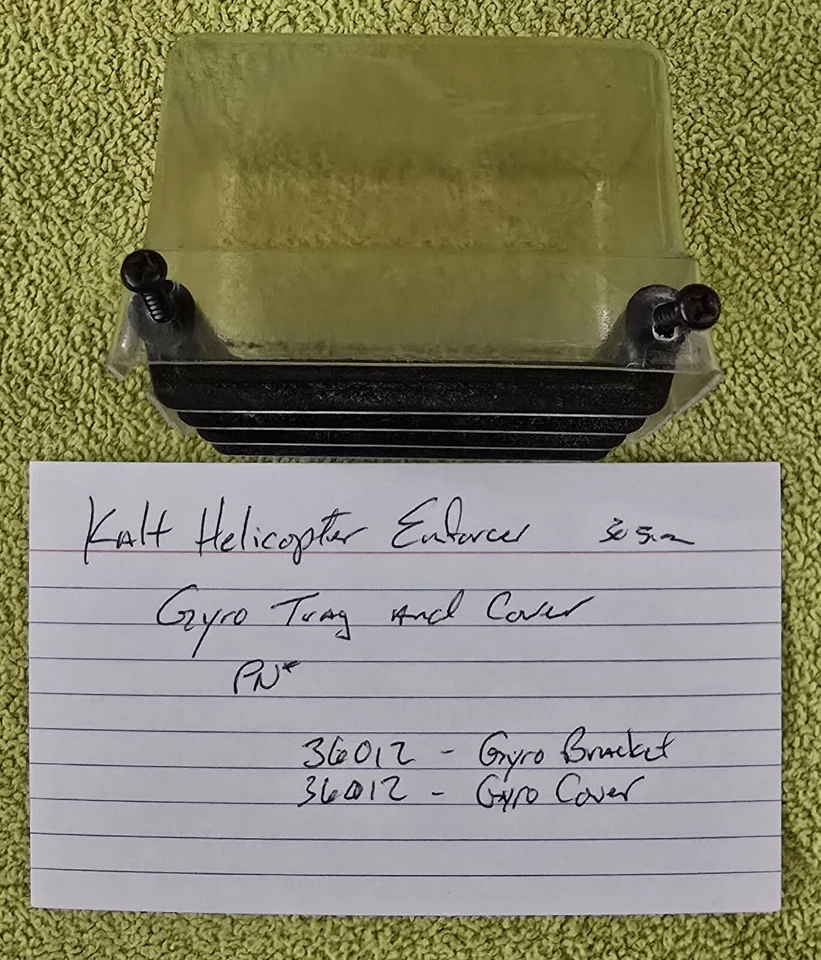 Kalt Helicopter Enforcer
Gyro Tray and Cover
PN#
36012 - Gyro Bracket
36012 - Gyro Cover